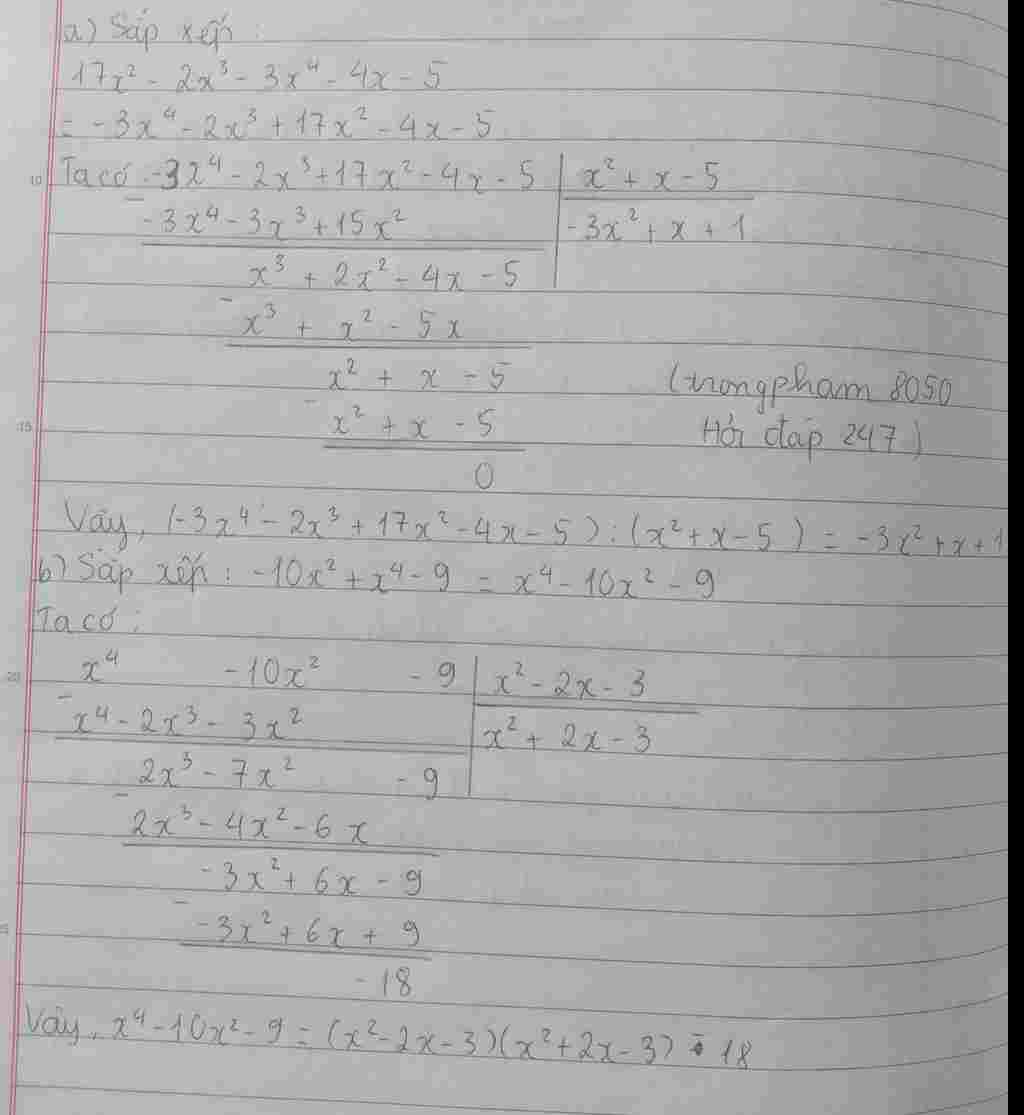 a) Sắp xếp :
17x² - 2x³ - 3x⁴ - 4x - 5
= -3x⁴ - 2x³ + 17x² - 4x - 5
Ta có: -3x⁴ - 2x³ + 17x² - 4x - 5 | x² + x - 5
- -3x⁴ - 3x³ + 15x² | -3x² + x + 1
x³ + 2x² - 4x - 5
- x³ + x² - 5x
x² + x - 5
- x² + x - 5
0
(trongpham 8050
Hỏi đáp 247)
Vậy, (-3x⁴ - 2x³ + 17x² - 4x - 5) : (x² + x - 5) = -3x² + x + 1
b) Sắp xếp : -10x² + x⁴ - 9 = x⁴ - 10x² - 9
Ta có :
x⁴ - 10x² - 9 | x² - 2x - 3
- x⁴ - 2x³ - 3x² | x² + 2x - 3
2x³ - 7x² - 9
- 2x³ - 4x² - 6x
-3x² + 6x - 9
- -3x² + 6x + 9
-18
Vậy, x⁴ - 10x² - 9 = (x² - 2x - 3)(x² + 2x - 3) - 18